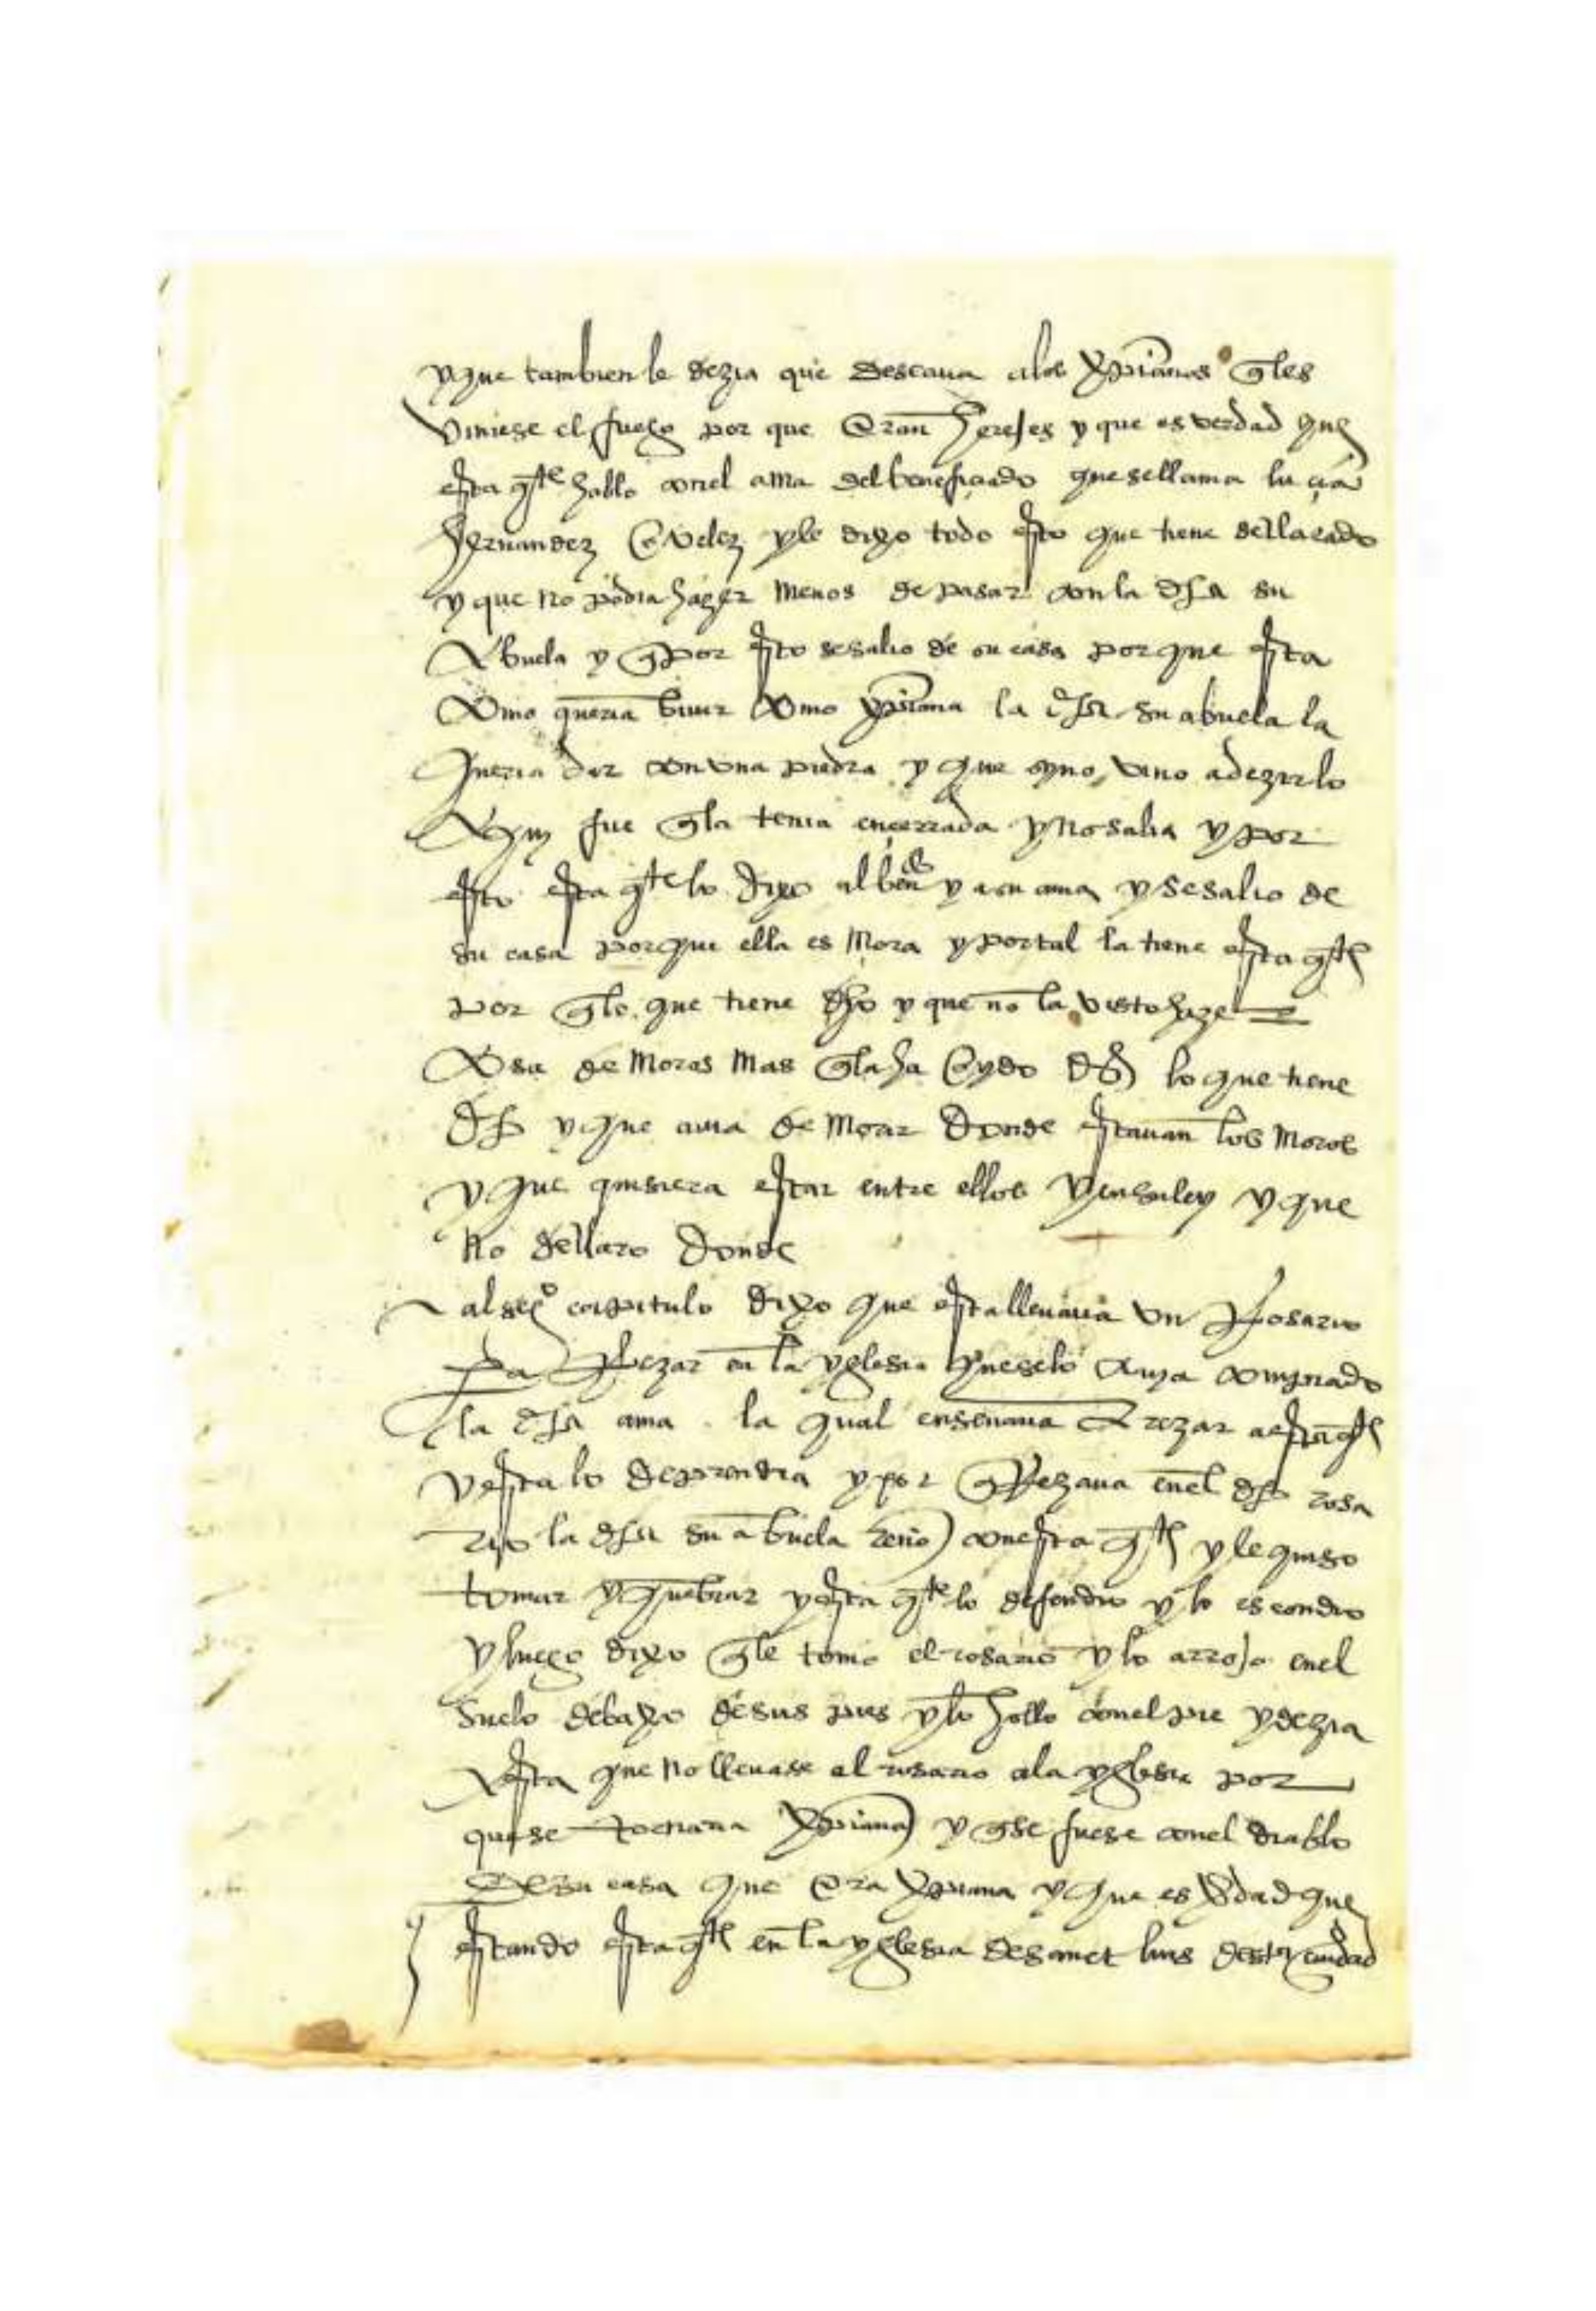 y que tambien le dezia que deseava a los xpianos q les
viniese el fuego por que eran herejes y que es verdad que
esta q te hablo con el ama del beneficiado que se llama lucia
hernandez e velez y le dixo todo esto que tiene decllarado
y que no podia hazer menos de pasar con la dha su
abuela y q por esto se salio de su casa porque esta
como queria bivir como xpiana la dha su abuela la
queria dar con una piedra y que syno vino a dezirlo
fue q la tenia encerrada y no salia y por
esto esta q te lo dixo al ben do y a su ama y se salio de
su casa porque ella es mora y por tal la tiene esta q te
por q lo que tiene dho y que no la visto haze
cosa de moros mas q la ha oydo dezir lo que tiene
dho y que ama de morar donde estavan los moros
y que quisiera estar entre ellos y en su ley y que
no decllaro donde
al seg o capitulo dixo que esta llevava un rosario
pa rezar en la yglesia que se lo avia comprado
la dha ama la qual ensenava a rezar a esta q te
y esta lo deprendia y por q rezava en el dho rosa
rio la dha su abuela renio con esta q te y le quiso
tomar y quebrar y esta q te lo defendio y lo escondio
y luego dixo q le tomo el rosario y lo arrojo en el
suelo debaxo de sus pies y lo hollo con el pie y dezia
a esta que no llevase el rosario a la yglesia por
que se tornaria xpiana y q se fuese con el diablo
de su casa que era xpiana y que es vdad que
estando esta q te en la yglesia de sanct luis desta ciudad